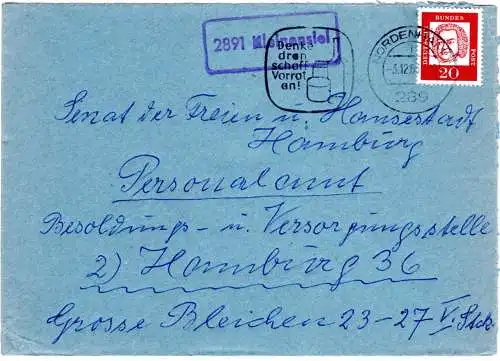 2891 Kleinensiel
Denke
dran
schaff
Vorrat
an!
NORDENHAM
-3.12.6
289
DEUTSCHE BUNDESPOST
20
Senat der Freien u. Hansestadt
Hamburg
Personalamt
Besoldungs- u. Versorgungsstelle
2) Hamburg 36
Grosse Bleichen 23-27 V. Stck.